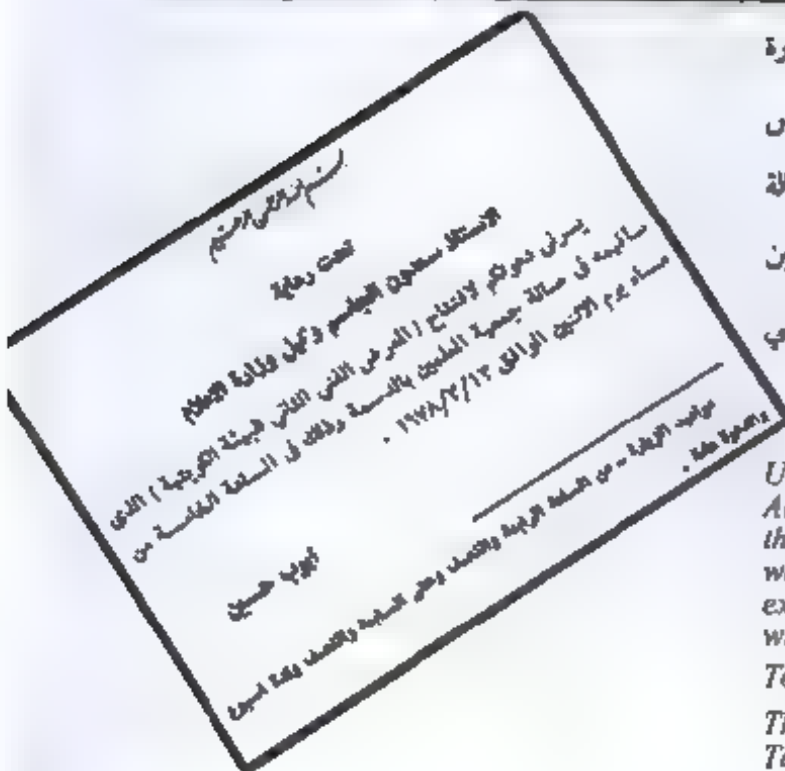 بسم الله الرحمن الرحيم
تحت رعاية
الاستاذ سعدون الجاسم وكيل وزارة الاعلام
يسرني دعوتكم لافتتاح ( المعرض الفني الثاني للبيئة الكويتية ) الذي
ساقيمه في صالة جمعية المعلمين بالدسمة وذلك في الساعة الخامسة من
مساء يوم الاثنين الموافق ١٩٧٨/٣/١٣ .
ايوب حسين
مواعيد الزيارة - من الساعة الرابعة والنصف وحتى السابعة والنصف ولمدة اسبوع
والدعوة عامة .
U
th
w
ex
w
Te
Ti